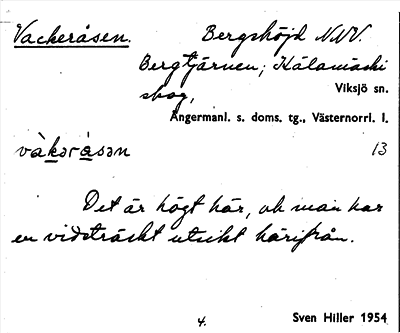 Vackeråsen. Bergshöjd NNV.
Bergtjärnen; Kälamäski
skog, Viksjö sn.
Ångermanl. s. doms. tg., Västernorrl. l.
våkəråsən 13
Det är högt här, oh man har
en vidsträckt utsikt härifrån.
4. Sven Hiller 1954